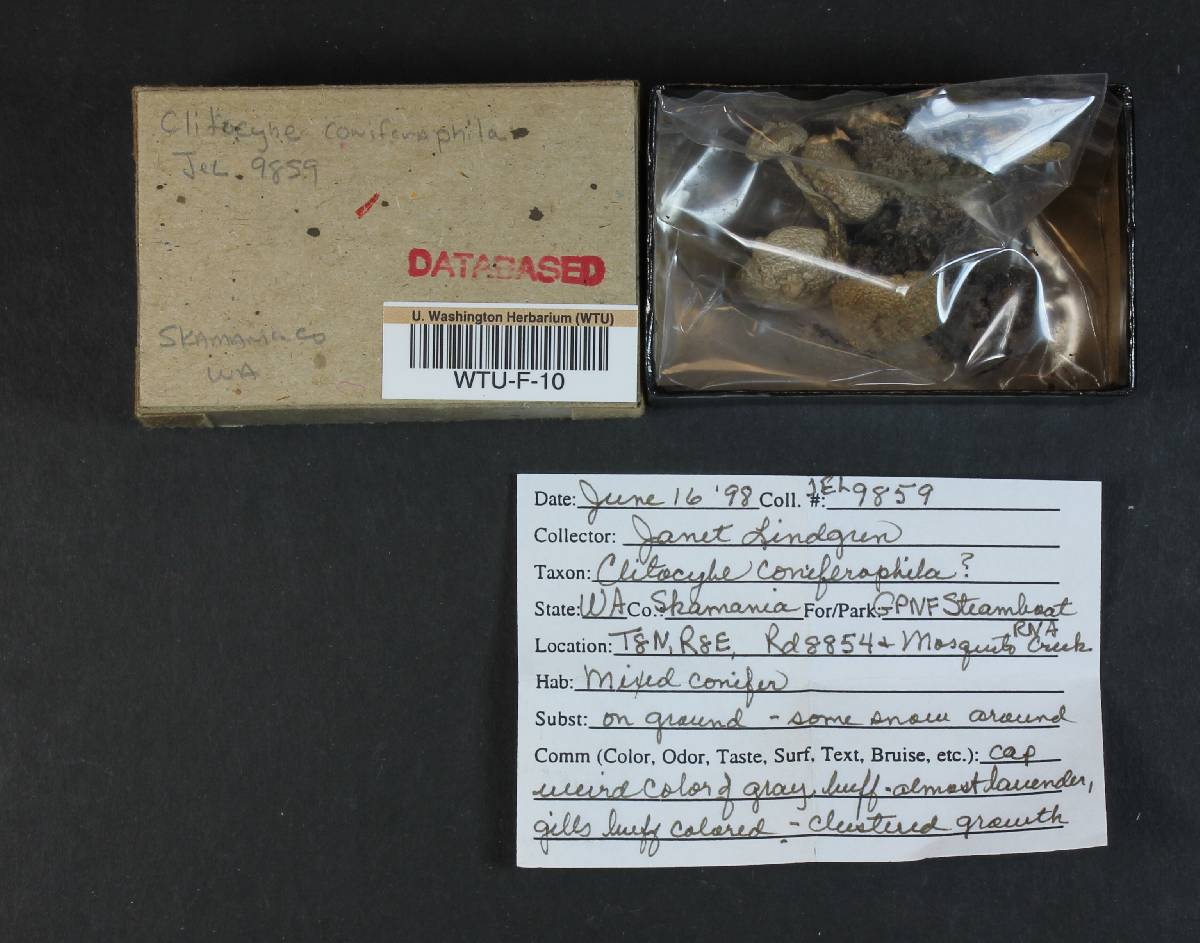 Clitocybe coniferophila
JeL 9859
DATABASED
SKAMANIA CO
WA
U. Washington Herbarium (WTU)
WTU-F-10
Date: June 16 '98 Coll. #: JEL 9859
Collector: Janet Lindgren
Taxon: Clitocybe coniferophila?
State: WA Co.: Skamania For/Park: GPNF Steamboat RNA
Location: T8N, R8E, Rd 8854 + Mosquito Creek
Hab: Mixed conifer
Subst: on ground - some snow around
Comm (Color, Odor, Taste, Surf, Text, Bruise, etc.): cap
weird color of gray, buff - almost lavender,
gills buff colored - clustered growth